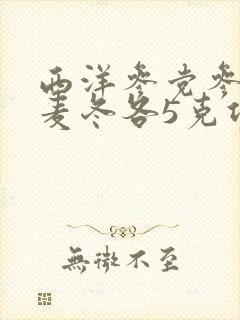 西洋参党参
麦冬各5克
無微不至